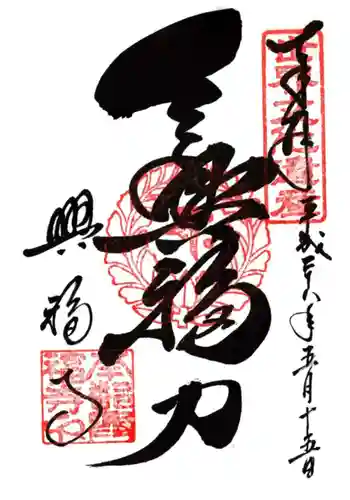 奉拝
平成二十八年五月十五日
令興福力
興福寺